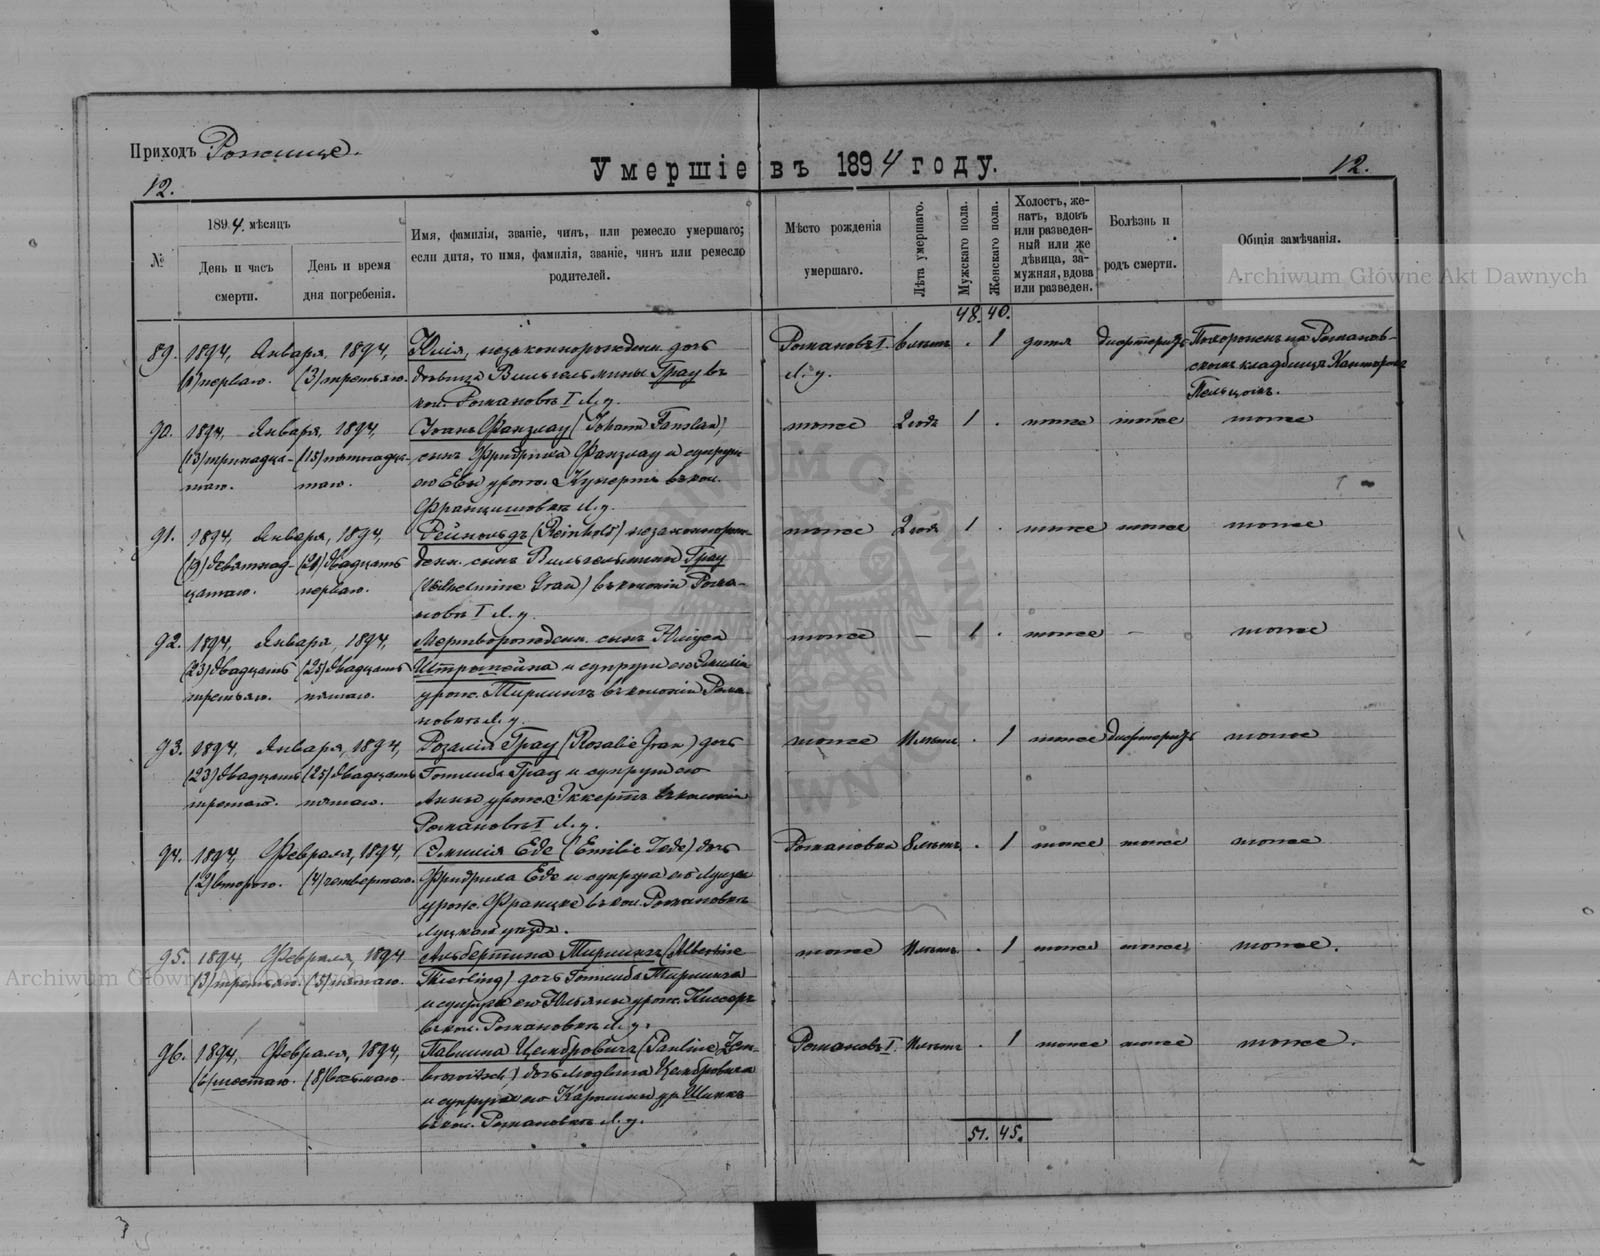 Приходъ Рожище.
Умершіе въ 1894 году.
12.
12.
№
1894 мѣсяцъ
День и часъ смерти.
День и время дня погребенія.
Имя, фамилія, званіе, чинъ, или ремесло умершаго; если дитя, то имя, фамилія, званіе, чинъ или ремесло родителей.
Мѣсто рожденія умершаго.
Лѣта умершаго.
Мужскаго пола.
Женскаго пола.
Холостъ, женатъ, вдовъ или разведенный или же дѣвица, замужняя, вдова или разведен.
Болѣзнь и родъ смерти.
Общія замѣчанія.
48. 40.
89. 1894, Января, 1894, Юлія, незаконнорожденн. дочь Романовъ I. 6 лѣтъ . 1 дитя дифтеритъ Похороненъ на Романов-
(1) перваго. (3) третьяго. дѣвицы Вильгельмины Грау въ Л. у. скомъ кладбищѣ Канторомъ
кол. Романовъ I Л. у. Пельцомъ.
90. 1894, Января, 1894, Іоанъ Фанзлау (Johann Fanslau) тоже 2 годъ 1 . тоже тоже тоже
(13) тринадца- (15) пятнадца- сынъ Фридриха Фанзлау и супруги
таго. таго. его Евы урож. Кунертъ въ кол.
Францишовкѣ Л. у.
91. 1894, Января, 1894, Рейнольдъ (Reinhold) незаконнорож- тоже 2 года 1 . тоже тоже тоже
(19) девятнад- (21) двадцать денн. сынъ Вильгельмины Грау
цатаго. перваго. (Wilhelmine Grau) въ колоніи Рома-
новъ I Л. у.
92. 1894, Января, 1894, Мертворожденн. сынъ Юліуса тоже — 1 . тоже — тоже
(23) двадцать (25) двадцать Штрошейна и супруги его Эмиліи
третьяго. пятаго. урож. Тирлингъ въ колоніи Рома-
новкѣ Л. у.
93. 1894, Января, 1894, Розалія Грау (Rosalie Grau) дочь тоже 11 лѣтъ . 1 тоже дифтеритъ тоже
(23) двадцать (25) двадцать Готлиба Грау и супруги его
третьяго. пятаго. Анны урож. Эккертъ въ колоніи
Романовъ I Л. у.
94. 1894, Февраля, 1894, Эмилія Еде (Emilie Jede) дочь Романовка 8 лѣтъ . 1 тоже тоже тоже
(2) второго. (4) четвертаго. Фридриха Еде и супруги его Луизы
урож. Францке въ кол. Романовкѣ
Луцкаго уѣзда.
95. 1894, Февраля, 1894 Альбертина Тирлингъ (Albertine тоже 11 лѣтъ . 1 тоже тоже тоже.
(3) третьяго. (5) пятаго. Thierling) дочь Готлиба Тирлинга
и супруги его Юльяны урож. Киссеръ
въ кол. Романовкѣ Л. у.
96. 1894, Февраля, 1894, Павлина Цембровичъ (Pauline Zem- Романовъ I. 11 лѣтъ . 1 тоже тоже тоже.
(6) шестаго. (8) восьмаго. browitsch) дочь Людвига Цембровича
и супруги его Каролины ур. Шинкъ
въ кол. Романовкѣ Л. у.
51. 45.
Archiwum Główne Akt Dawnych
Archiwum Główne Akt Dawnych